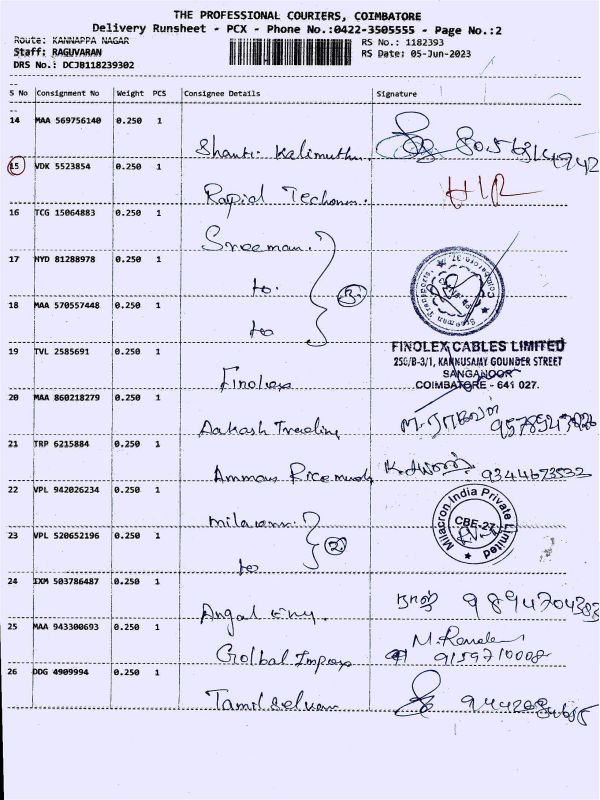 THE PROFESSIONAL COURIERS, COIMBATORE
Delivery Runsheet - PCX - Phone No.:0422-3505555 - Page No.:2
Route: KANNAPPA NAGAR
Staff: RAGUVARAN
DRS No.: DCJB118239302
RS No.: 1182393
RS Date: 05-Jun-2023
S No Consignment No Weight PCS Consignee Details Signature
14 MAA 569756140 0.250 1
Shanti Kalimuthu
15 VDK 5523854 0.250 1
Rapid
16 TCG 15064883 0.250 1
Sreeman
17 HYD 81288978 0.250 1
to
3
18 MAA 570557448 0.250 1
to
19 TVL 2585691 0.250 1
Finolex
FINOLEX CABLES LIMITED
250/B-3/1, KANNUSAMY GOUNDER STREET
SANGANOOR
COIMBATORE - 641 027.
20 MAA 860218279 0.250 1
Aakash Trading
21 TRP 6215884 0.250 1
Ammans Rice 9344673532
22 VPL 942026234 0.250 1
Milacron
Milacron India Private Limited
CBE-27
23 VPL 520652196 0.250 1
2
to
24 IXM 503786487 0.250 1
Angal 9894704383
25 MAA 943300693 0.250 1
Golbal Impex 9159710008
26 DDG 4909994 0.250 1
Tamilselvan